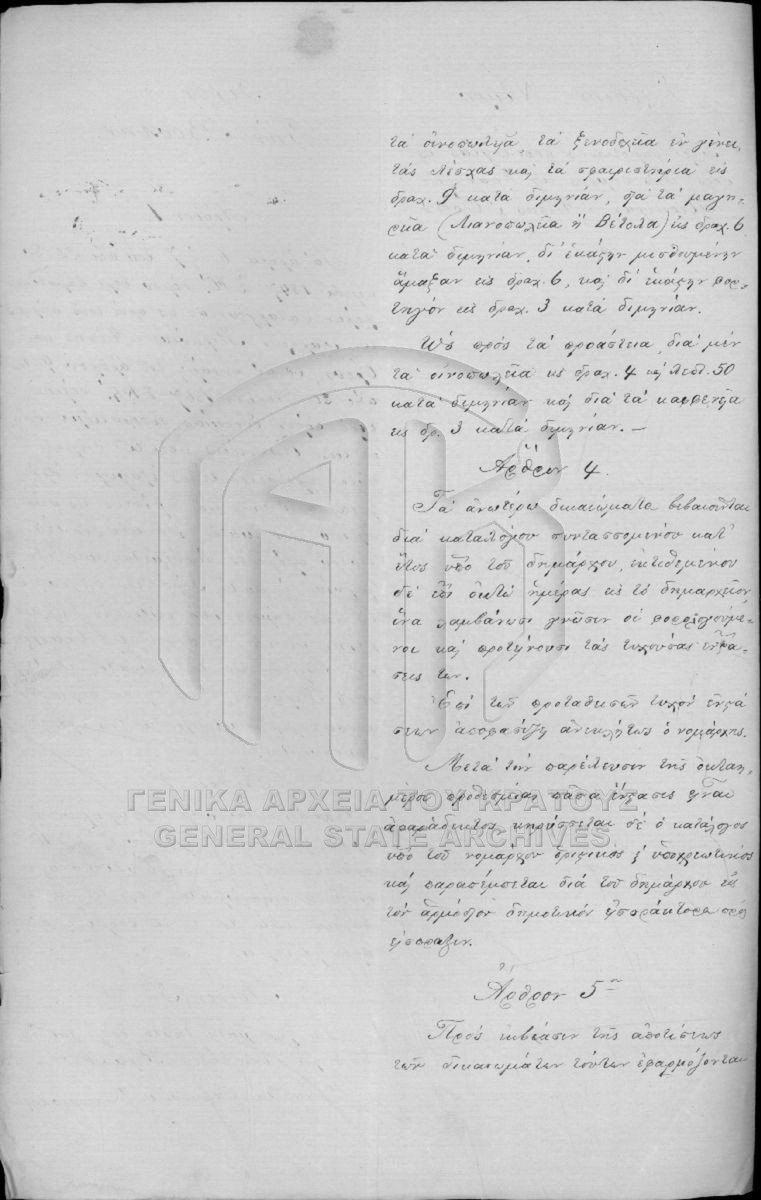 τὰ οἰνοπωλεῖα, τὰ ξενοδοχεῖα ἐν γένει,
τὰς λέσχας καὶ τὰ σφαιριστήρια εἰς
δραχ. 9 κατὰ διμηνίαν, τὰ μαγει-
ρεῖα (Λιανοπωλεῖα ἢ Βέτολα) εἰς δραχ. 6
κατὰ διμηνίαν, δι' ἑκάστην μισθουμένην
ἅμαξαν εἰς δραχ. 6, καὶ δι' ἑκάστην φορ-
τηγὸν εἰς δραχ. 3 κατὰ διμηνίαν.
Ὡς πρὸς τὰ προάστεια, διὰ μὲν
τὰ οἰνοπωλεῖα εἰς δραχ. 4 καὶ λεπτ. 50
κατὰ διμηνίαν καὶ διὰ τὰ καφφενεῖα
εἰς δρ. 3 κατὰ διμηνίαν. —
Ἄρθρον 4.
Τὰ ἀνωτέρω δικαιώματα βεβαιοῦνται
διὰ καταλόγου συντασσομένου κατ'
ἔτος ὑπὸ τοῦ δημάρχου, ἐκτιθεμένου
δὲ ἐπὶ ὀκτὼ ἡμέρας εἰς τὸ δημαρχεῖον,
ἵνα λαμβάνωσι γνῶσιν οἱ φορολογούμε-
νοι καὶ προτείνουσι τὰς τυχούσας ἐνστά-
σεις των.
Ἐπὶ τῶν προταθεισῶν τυχὸν ἐνστά
σεων ἀποφασίζει ἀνεκκλήτως ὁ νομάρχης.
Μετὰ τὴν παρέλευσιν τῆς ὀκταη-
μέρου προθεσμίας πᾶσα ἔνστασις εἶναι
ἀπαράδεκτος, κηρύσσεται δὲ ὁ κατάλογος
ὑπὸ τοῦ νομάρχου ὁριστικὸς ὑποχρεωτικὸς
καὶ παραπέμπεται διὰ τοῦ δημάρχου εἰς
τὸν ἁρμόδιον δημοτικὸν εἰσπράκτορα πρὸς
εἴσπραξιν.
Ἄρθρον 5ον
Πρὸς ἐκβίασιν τῆς ἀποτίσεως
τῶν δικαιωμάτων τούτων ἐφαρμόζονται
ΓΕΝΙΚΑ ΑΡΧΕΙΑ ΤΟΥ ΚΡΑΤΟΥΣ
GENERAL STATE ARCHIVES